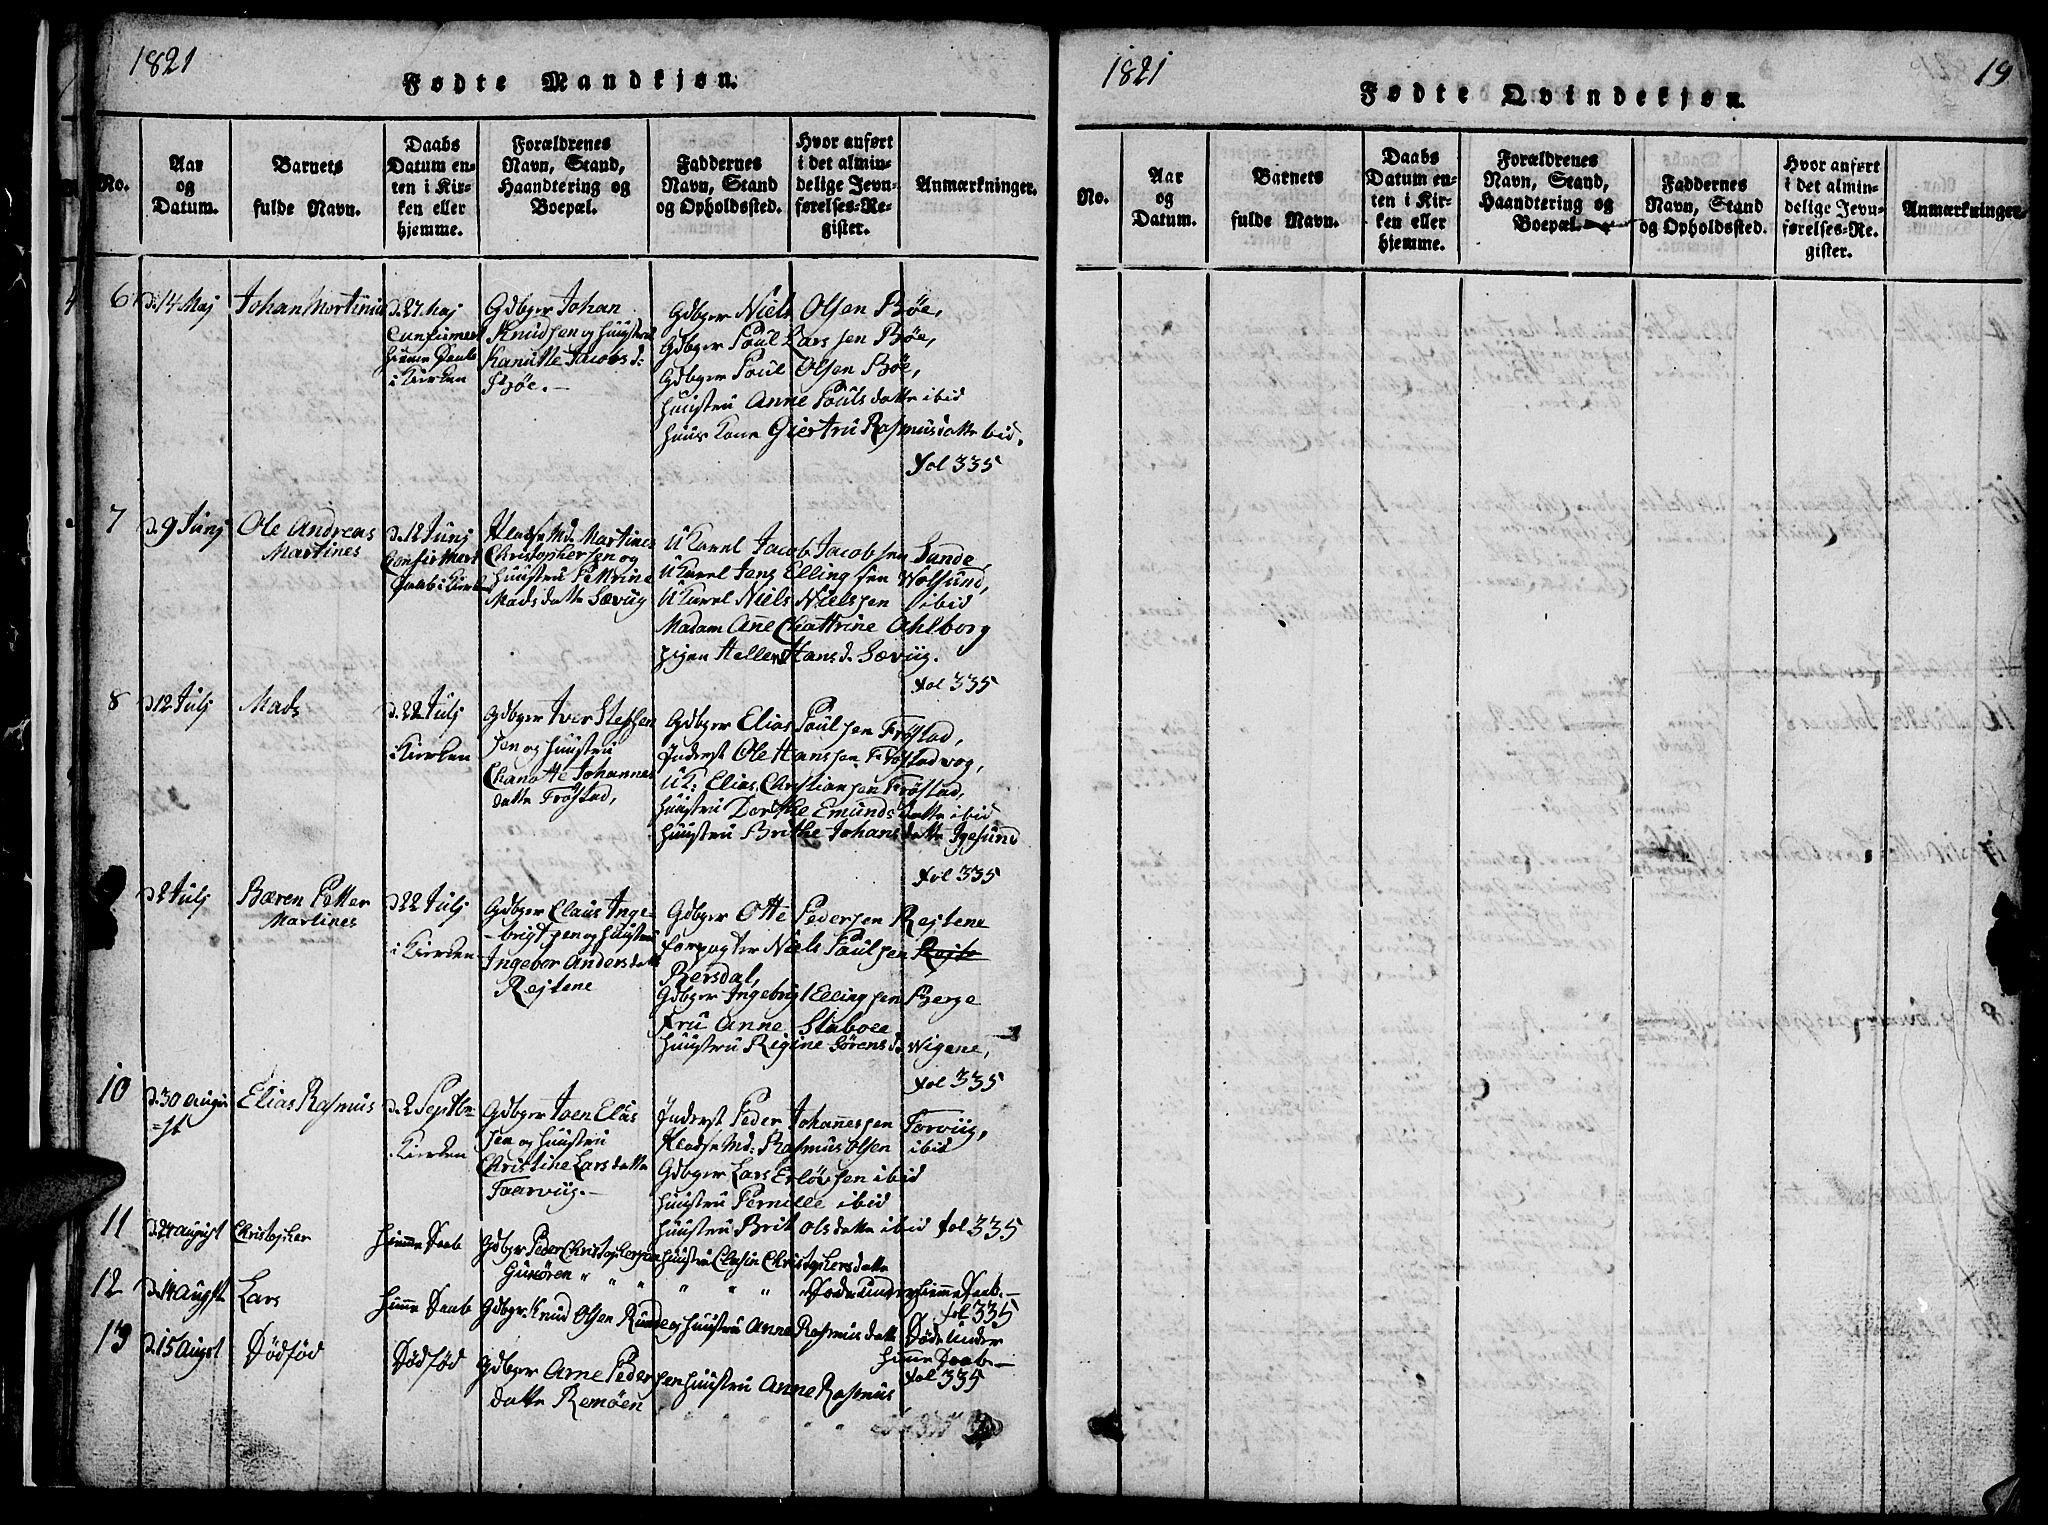 1821
Fødte Mandkjøn.
No.
Aar og Datum.
Barnets fulde Navn.
Daabs Datum enten i Kirken eller hjemme.
Forældrenes Navn, Stand, Haandtering og Boepæl.
Faddernes Navn, Stand og Opholdssted.
Hvor anført i det almindelige Jevnførelses-Register.
Anmærkninger.
6 d. 14 Maj Johan Mortinus
d. 27 Maj
Confirmert
hiemme Daab
i Kirken
Gdbger Johan
Knudsen og Huustru
Kanutte Jacobs d:
Bøe.-
Gdbger Niels Olsen Bøe,
Gdbger Poul Larssen Bøe,
Gdbger Poul Olsen Bøe,
Huustru Anne Pouls datte ibid
Huus Kone Giertru Rasmusdatte ibid.
fol 335
7 d. 9 Junj Ole Andreas
Martines
d. 12 Junj
Confirmert
Daab i Kirken
Md. Martines
Christophersen og
Huustru Pettrine
Mads datte Sævüg
U Karel Jacob Jacobsen Sande,
U Karel Jens Ellingsen Wolsund,
U Karel Niels Nielsen ibid
Madam Anne Chattrine Ahlborg
Pigen Helle Hans d. Sævüg.
fol 335
8 d. 12 Julj Mads
d. 22 Julj
i Kirken
Gdbger Iver Steffen
sen og Huustru
Chanotte Johannes
datte Frøstad,
Gdbger Elias Poulsen Frøstad,
Inderst Ole Hanssen Frøstadvog,
UK: Elias Christiansen Frøstad,
Huustru Dorthe Emunds datte ibid
Huustru Brithe Johans datte Igesund
fol 335
d. 2 Julj Bæren Petter
Martines
d. 22 Julj
i Kirken
Gdbger Claus Inge-
-brigtsen og Huustru
Ingebor Anders datte
Rejtene
Gdbger Otte Pedersen Rejtene
Forpagter Niels Poulsen Rejte
Bersdal,
Gdbger Ingebrigt Ellingsen Berge
Fru Anne Staboee
Huustru Regine Sørens d. Wigene,
fol 335
10 d. 30 Augu
=st
Elias Rasmus
d. 2 Septbr
i Kirken
Gdbger Joen Elias
sen og Huustru
Christine Lars datte
Taarvüg.-
Inderst Peder Johannessen Torvüg,
Md: Rasmus Olsen ibid
Gdbger Lars Erløvsen ibid
Huustru Pernille ibid
Huustru Brit Ols datte ibid fol 335
11 d. 24 August Christopher
Hiemme Daab
Gdbger Peder Christophersen Huustru Christophersdatte
Gurøren " " " " " "
Døde under Hiemme Daab.-
fol 335
12 d. 14 Augst Lars
Hiemme Daab
Gdbgr. Knud Olsen Runde og Huustru Anne Rasmus datte Døde under
Hieme Daab-
fol 335
13 d. 15 Augst Dødfød
Dødfød
Gdbger Arne Pedersen Huustru Anne Rasmus
datte Remøen " " " "
1821
Fødte Qvindekjøn.
19
No.
Aar og Datum.
Barnets fulde Navn.
Daabs Datum enten i Kirken eller hjemme.
Forældrenes Navn, Stand, Haandtering og Boepæl.
Faddernes Navn, Stand og Opholdssted.
Hvor anført i det almindelige Jevnførelses-Register.
Anmærkninger.